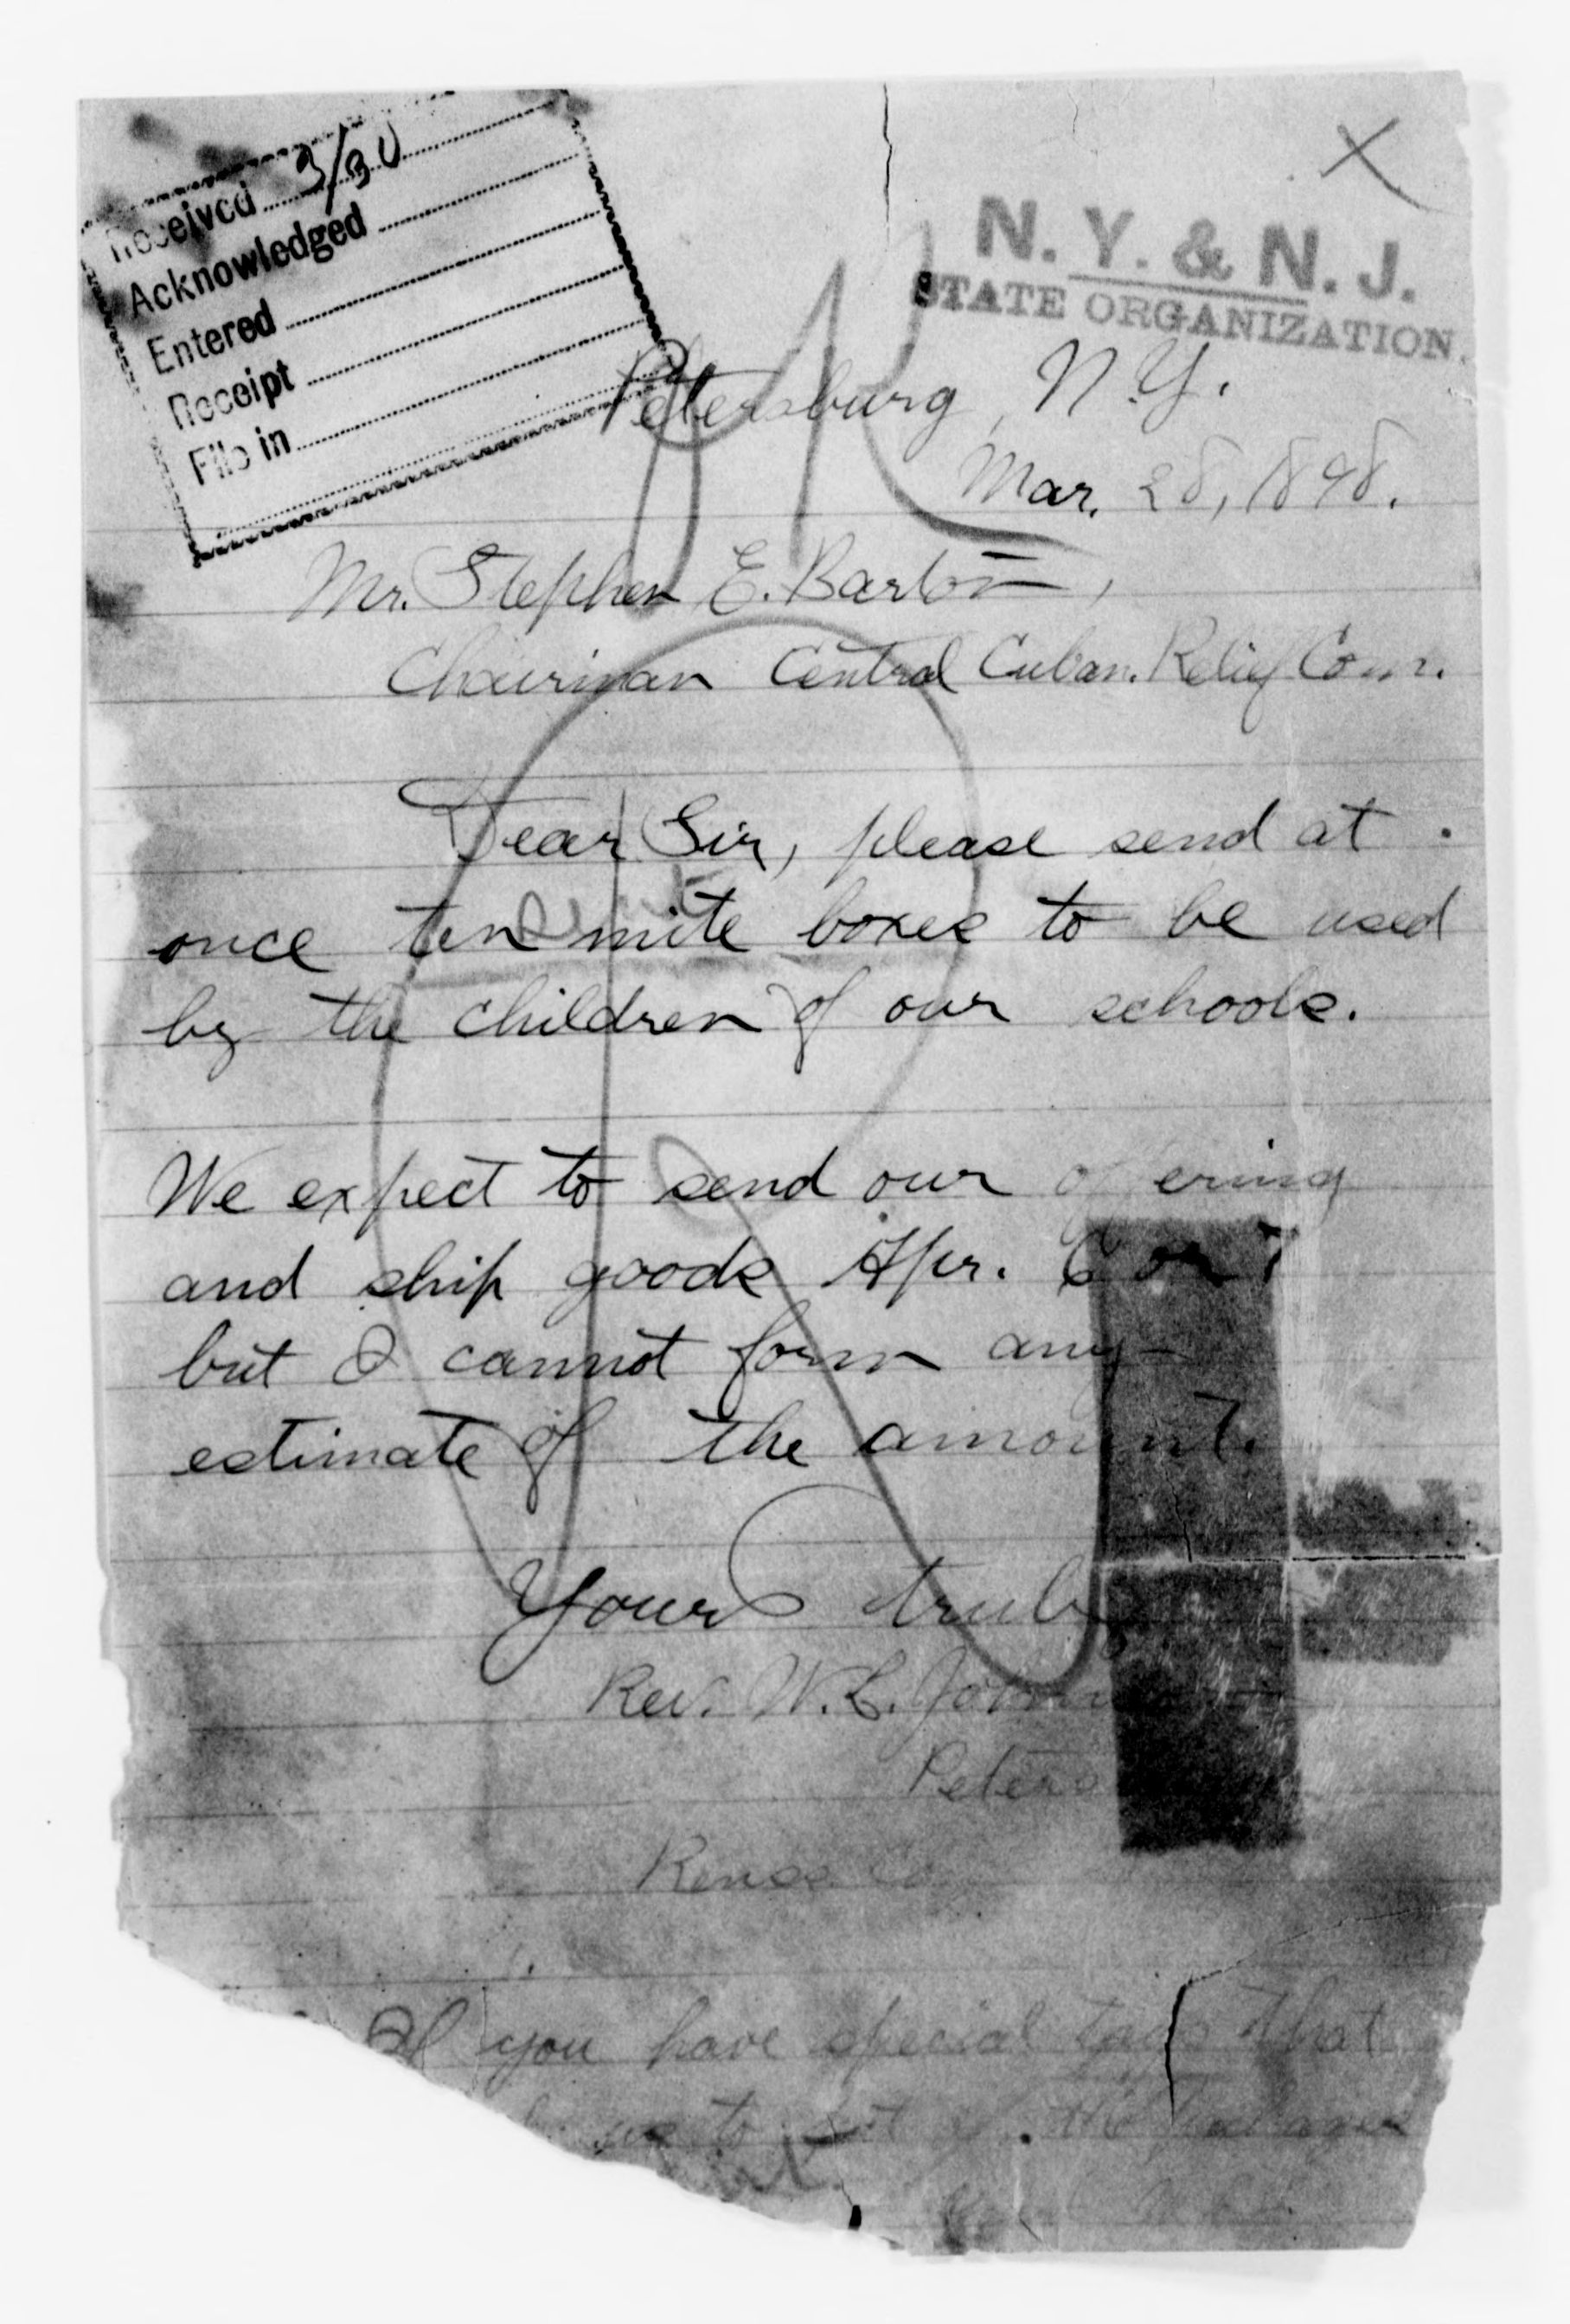 Received 3/30
Acknowledged
Entered
Receipt
File in
N. Y. & N. J.
STATE ORGANIZATION.
Petersburg, N.Y.
Mar. 28, 1898.
Mr. Stephen E. Barton,
Chairman Central Cuban Relief Com.
Dear Sir, please send at
once ten mite boxes to be used
by the children of our schools.
We expect to send our offering
and ship goods Apr. 6 or 7
but I cannot form any
estimate of the amount.
Yours truly
Rev. W.L.
Peters
Renss Co
If you have special tags that
us to put the packages